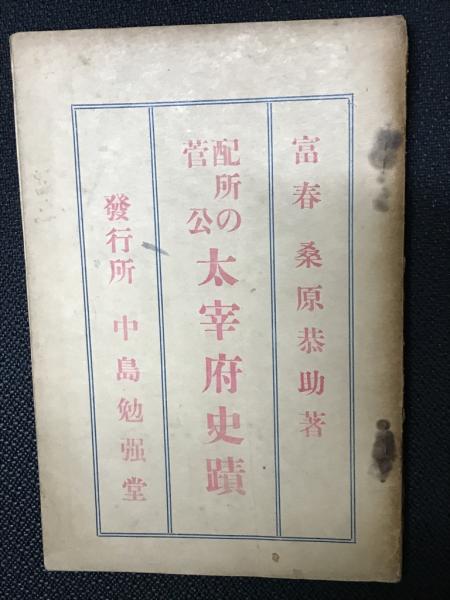 富春 桑原恭助著
配所の
菅公
太宰府史蹟
發行所 中島勉强堂